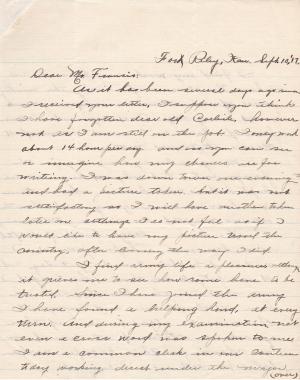 Fort Riley, Kan. Sept 10,'17
Dear Mr Francis:
As it has been several days ago since
I received your letter, I suppose you think
I have forgotten dear old Carlisle, however
not as I am still on the job. I
about 14 hour per day and so you can see
or imagine how my chances is for
writing. I was down town one evening
and had a picture taken, but it was not
satisfactory so I will have another taken
later on although I do not feel as if I
would like to have my picture
country, after the way I did.
I find army life a pleasure
it grieves me to see how some have to be
treated. Since I have joined the army
I have found a helping hand, at every
turn. And during my examination not
even a cross word was spoken to me
I am a common clerk in our Canteen
today working direct under the major
(over)